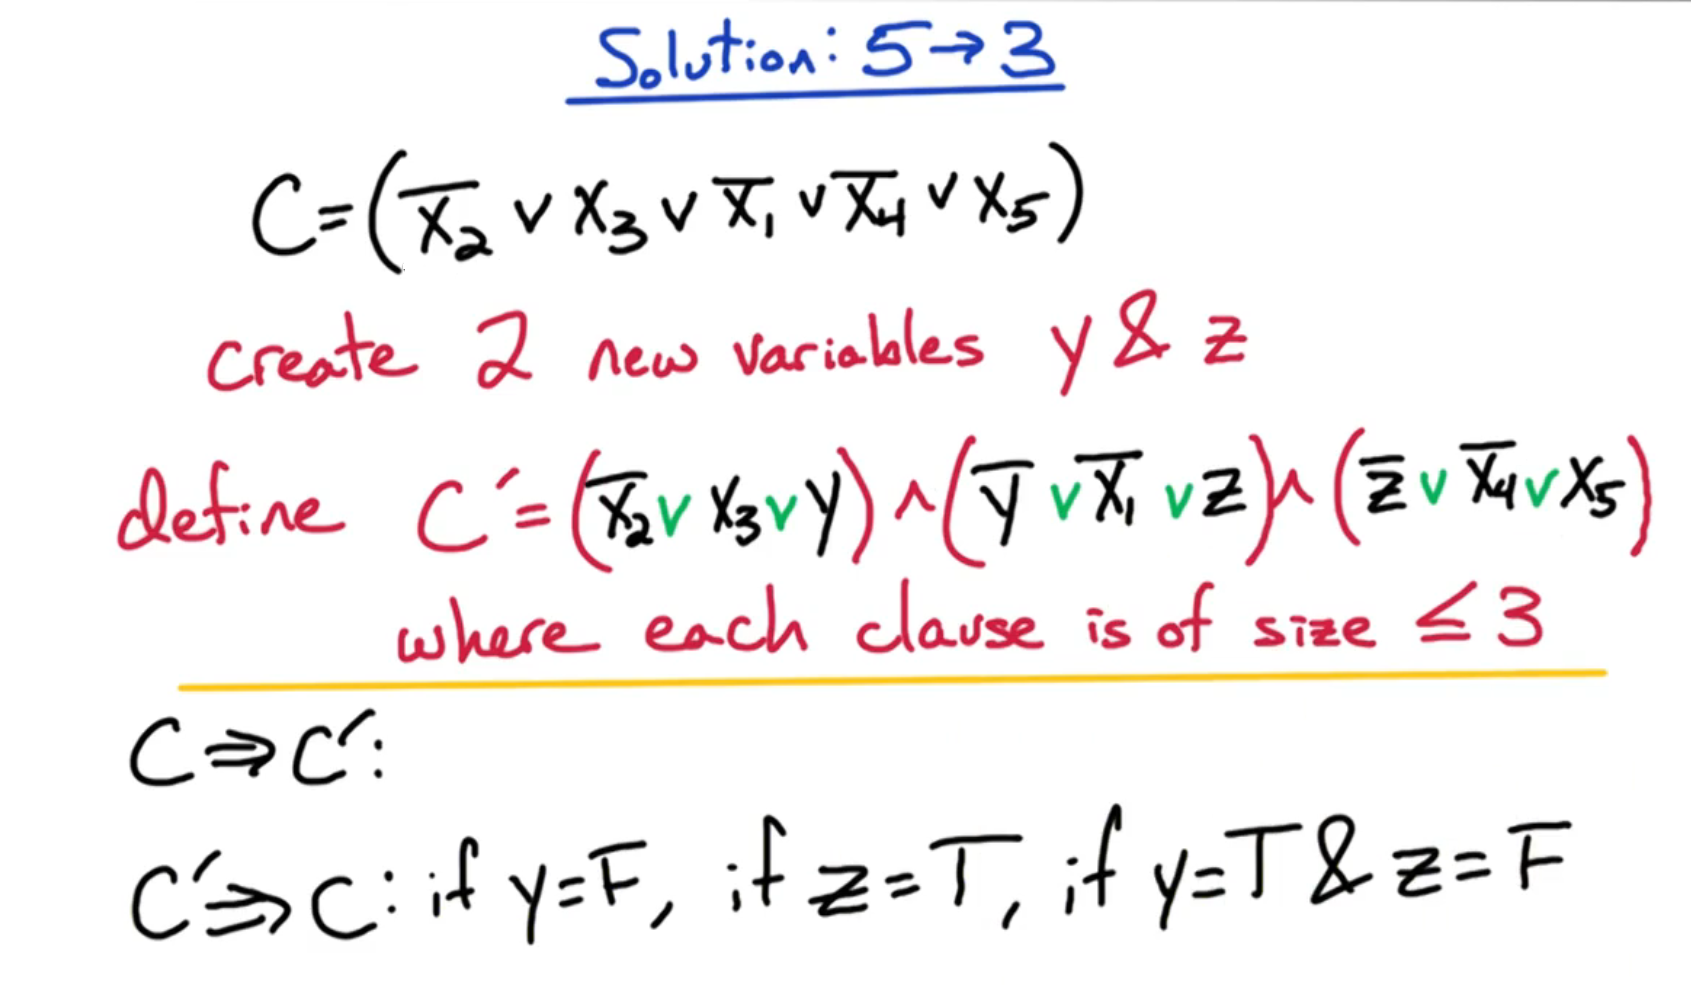 Solution: 5→3
C=(x̅₂ ∨ x₃ ∨ x̅₁ ∨ x̅₄ ∨ x₅)
create 2 new variables y & z
define C′=(x̅₂ ∨ x₃ ∨ y) ∧ (y̅ ∨ x̅₁ ∨ z) ∧ (z̅ ∨ x̅₄ ∨ x₅)
where each clause is of size ≤ 3
C⇒C′:
C′⇒C: if y=F, if z=T, if y=T & z=F